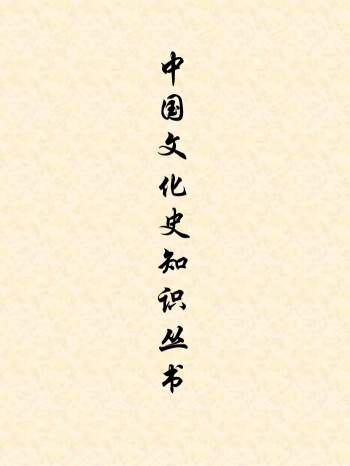 中国文化史知识丛书